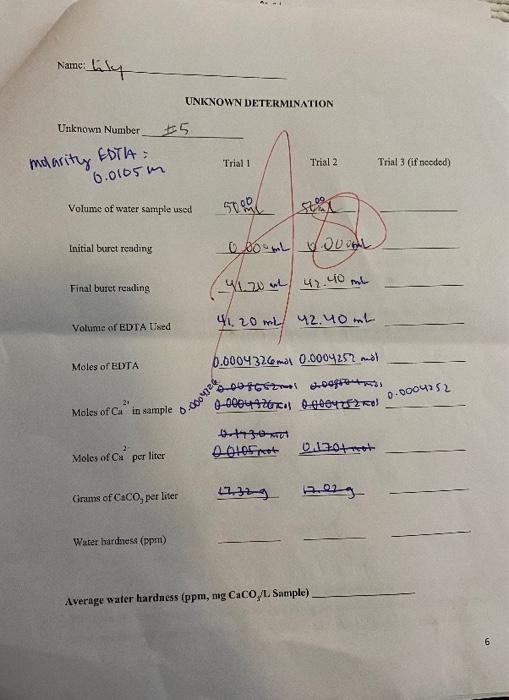 Name: Lily
UNKNOWN DETERMINATION
Unknown Number #5
molarity EDTA:
0.0105 m
Trial 1 Trial 2 Trial 3 (if needed)
Volume of water sample used 50.00 mL 50.00 mL
Initial buret reading 0.00 mL 0.00 mL
Final buret reading 41.20 mL 42.40 mL
Volume of EDTA Used 41.20 mL 42.40 mL
Moles of EDTA 0.0004326 mol 0.0004252 mol
0.008652 mol
Moles of Ca2+ in sample 0.0004326 0.0004326 mol 0.0004252 mol 0.0004252
0.1730 mol
Moles of Ca2+ per liter 0.0105 mol 0.1701 mol
Grams of CaCO3 per liter 17.32 g 17.02 g
Water hardness (ppm)
Average water hardness (ppm, mg CaCO3/L Sample)
6